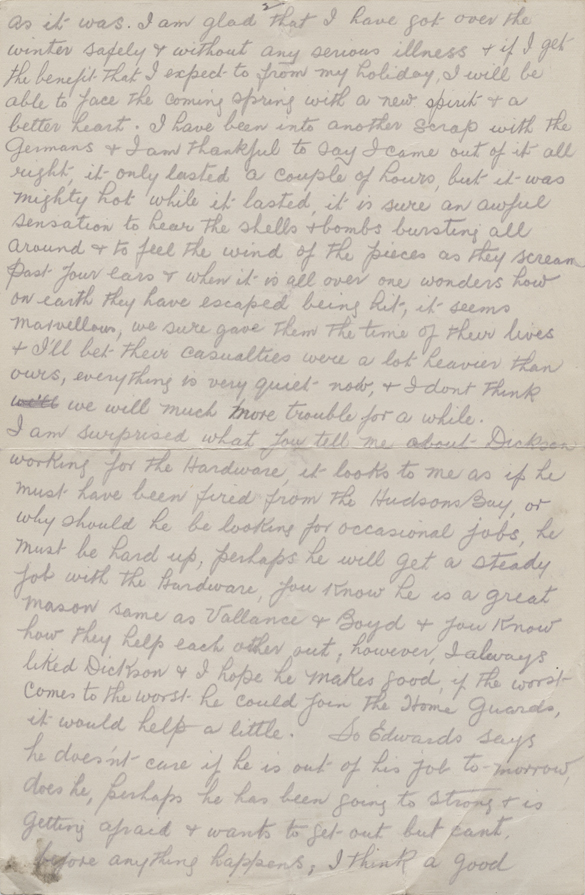 2
as it was. I am glad that I have got over the
winter safely & without any serious illness & if I get
the benefit that I expect to from my holiday, I will be
able to face the coming spring with a new spirit & a
better heart. I have been into another scrap with the
Germans & I am thankful to say I came out of it all
right, it only lasted a couple of hours, but it was
mighty hot while it lasted, it is sure an awful
sensation to hear the shells & bombs bursting all
around & to feel the wind of the pieces as they scream
past your ears & when it is all over one wonders how
on earth they have escaped being hit, it seems
marvellous, we sure gave them the time of their lives
& I'll bet their casualties were a lot heavier than
ours, everything is very quiet now, & I dont think
we'll we will much more trouble for a while.
I am surprised what you tell me about Dickson
working for the Hardware, it looks to me as if he
must have been fired from the Hudsons Bay, or
why should he be looking for occasional jobs, he
must be hard up, perhaps he will get a steady
job with the Hardware, you know he is a great
mason same as Vallance & Boyd & you know
how they help each other out, however, I always
liked Dickson & I hope he makes good, if the worst
comes to the worst he could join the Home Guards,
it would help a little. So Edwards says
he does'nt care if he is out of his job to-morrow,
does he, perhaps he has been going to strong & is
getting afraid & wants to get out but cant,
before anything happens; I think a good